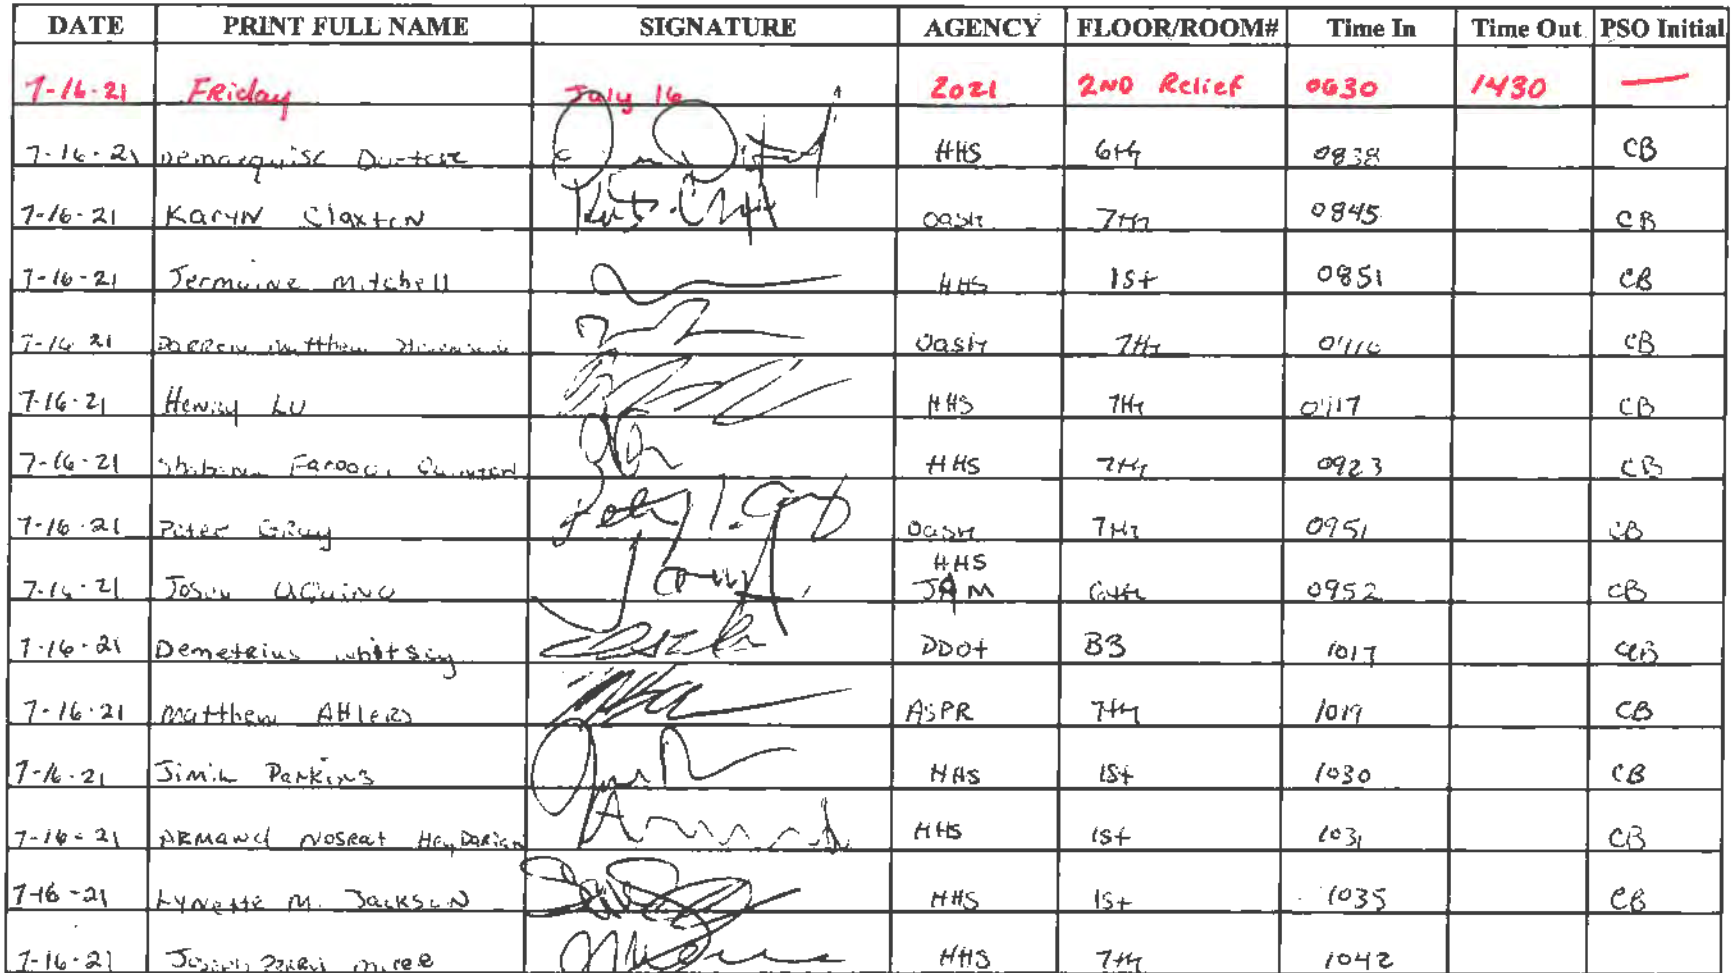 DATE PRINT FULL NAME SIGNATURE AGENCY FLOOR/ROOM# Time In Time Out PSO Initial
7-16-21 FRiday July 16 2021 2ND Relief 0630 1430 —
7-16-21 Demarquise HHS 6th 0838 CB
7-16-21 KaryN ClaxtoN Oash 7th 0845 CB
7-16-21 Jermaine mitchell HHS 1st 0851 CB
7-16-21 DaRReN matthew Oash 7th CB
7-16-21 Henry LU HHS 7th 0917 CB
7-16-21 Farooqi HHS 7th 0923 CB
7-16-21 Peter GRay Oash 7th 0951 CB
HHS
7-16-21 Aquino JAM 6th 0952 CB
7-16-21 Demetrius whitsey DDot B3 1017 CB
7-16-21 Matthew AHleRs ASPR 7th 1019 CB
7-16-21 Perkins HHS 1st 1030 CB
7-16-21 ARMANd NoSRat HeyDaRian HHS 1st 1031 CB
7-16-21 LyNette M. JacksoN HHS 1st 1035 CB
7-16-21 Joseph HHS 7th 1042